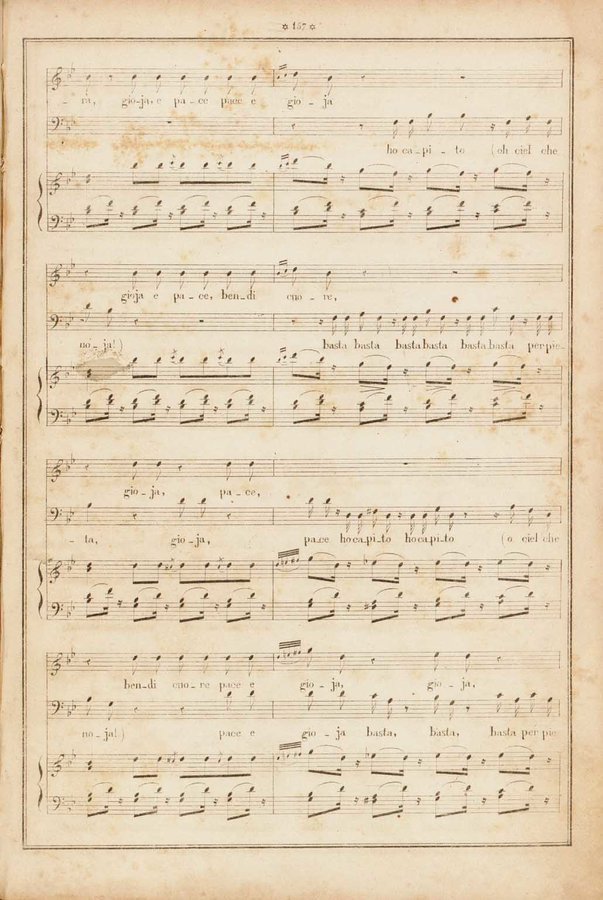 ✡ 157 ✡
- ra, gio-ja, e pa - ce pace e gio - ja
ho ca - pi - to (oh ciel che
gioja e pa - ce, ben-di cuo - re,
no - ja!) basta basta basta basta basta basta per pie-
gio - ja, pa - ce,
- ta, gio - ja, pa-ce ho ca-pi-to ho ca-pi-to (o ciel che
ben-di cuo-re pace e gio - ja, gio - ja,
no-ja!) pace e gio - ja basta, basta, basta per pie